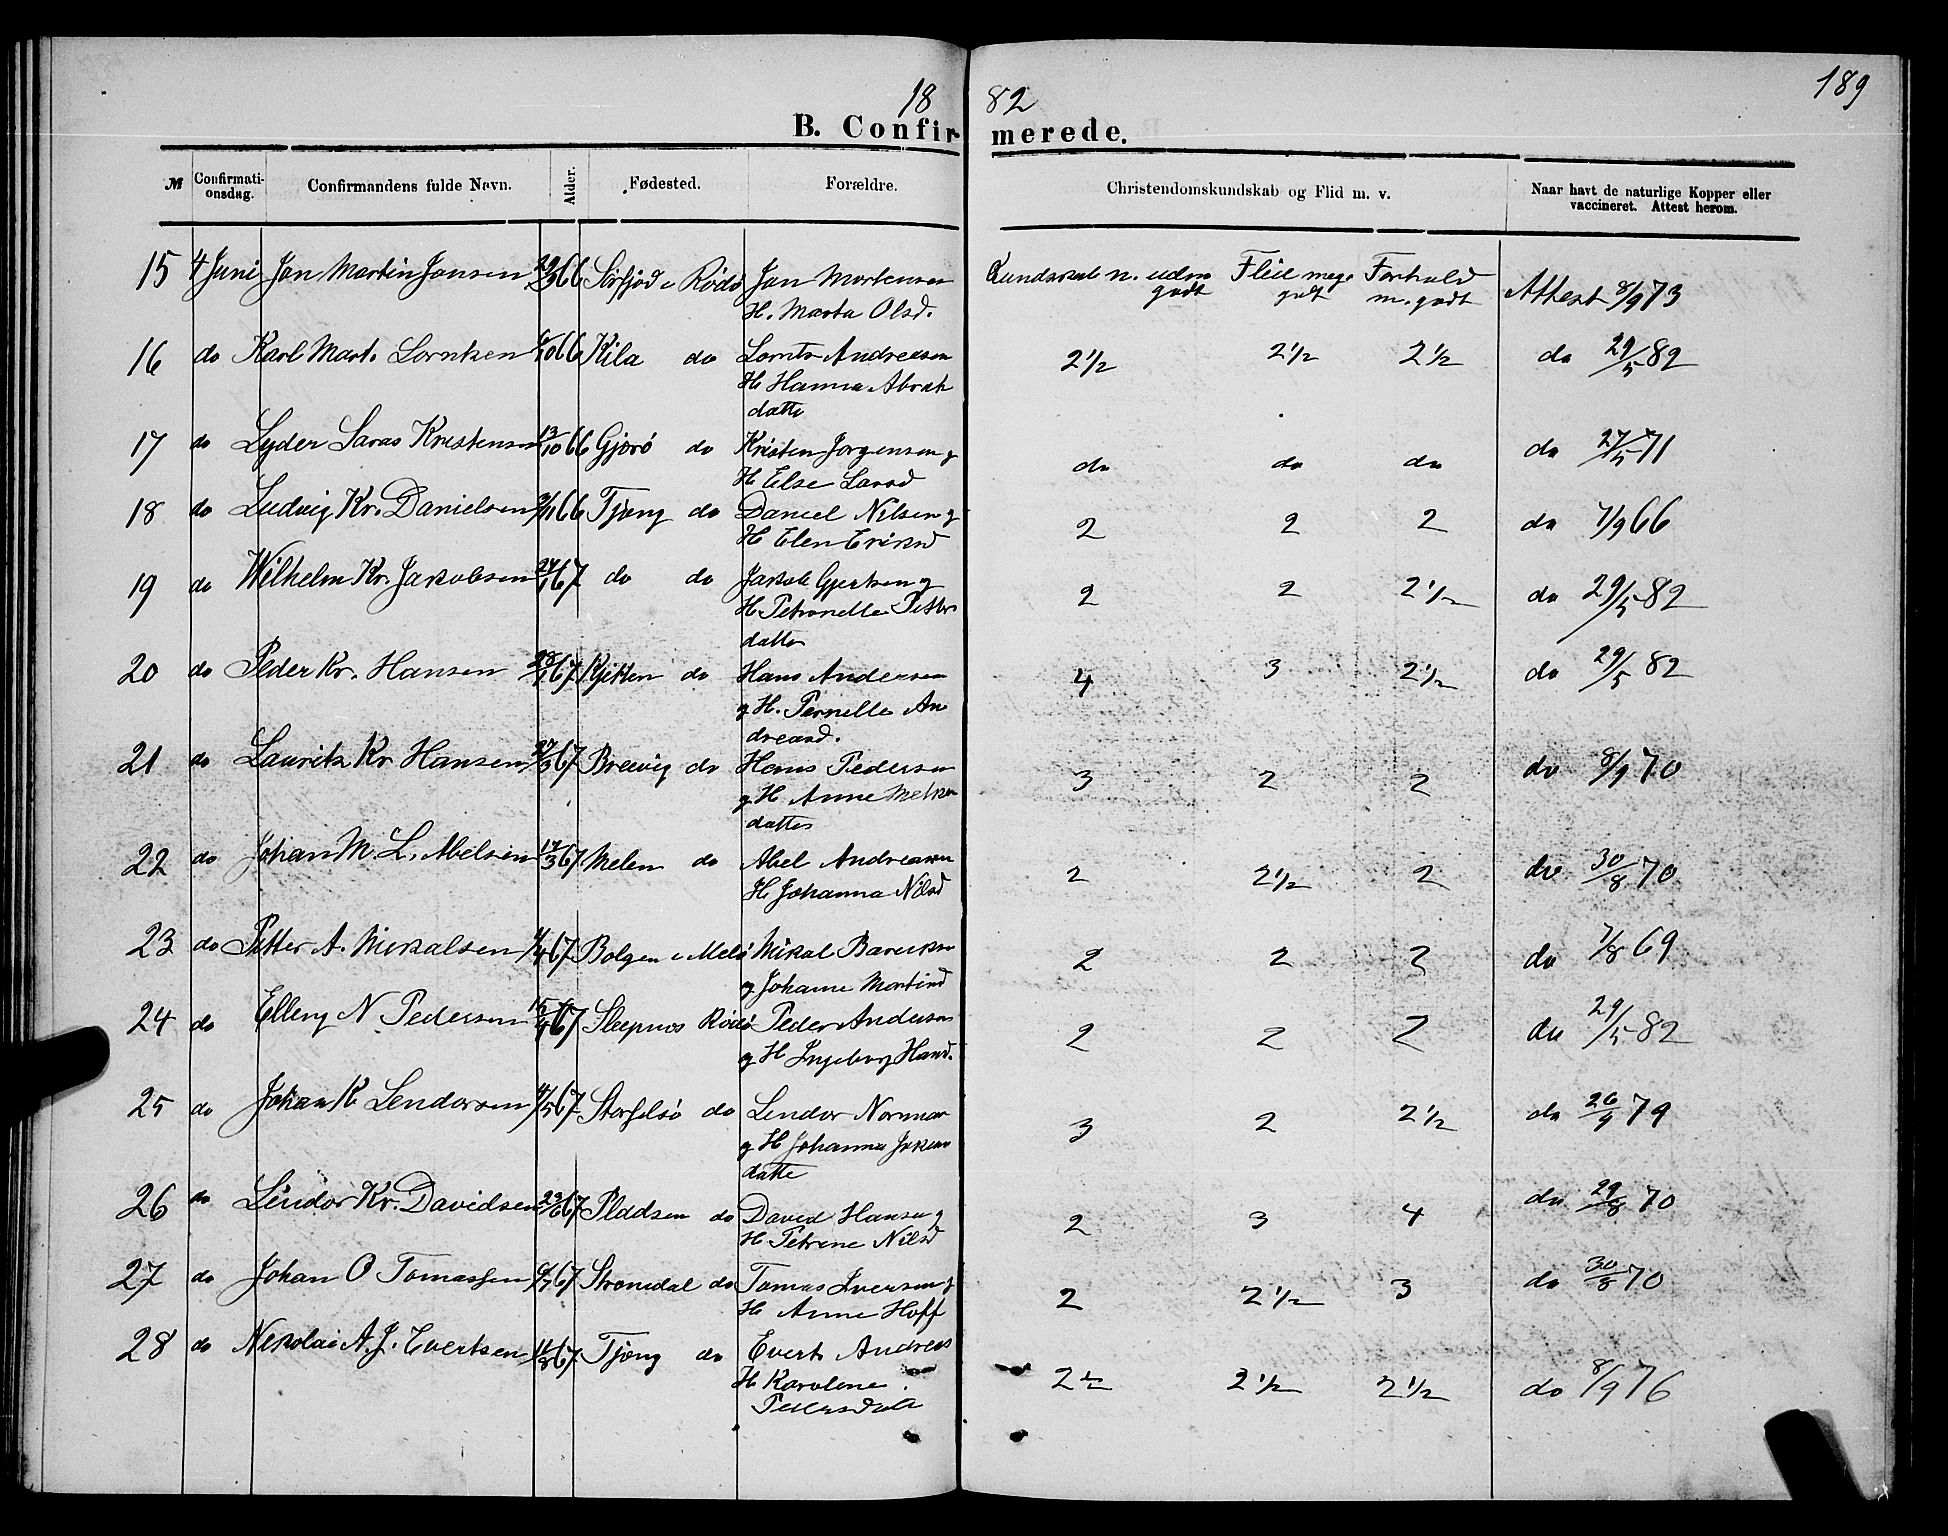 18 82
189
B. Confirmerede.
№ Confirmationsdag. Confirmandens fulde Navn. Alder. Fødested. Forældre. Christendomskundskab og Flid m. v. Naar havt de naturlige Kopper eller vaccineret. Attest herom.
15 4 Juni Jon Martin Jonsen 66 Sørfjod i Rødø Jon Mortensen Kundskab n. udm Flid meg. Forhold
H. Marta Olsd. godt godt m. godt Attest 8/9 73
16 do Karl Mart. Lorntsen 66 Kila do Lornts Andreasen 2½ 2½ 2½ do 29/5 82
H Hanna Abrah
datte
17 do Lyder Saras Kristensen 13/10 66 Gjørø do Kristen Jørgensen g do do do do 27/5 71
H Else Larsd
18 do Ludvig Kr. Danielsen 66 Tjong do Daniel Nilsen g 2 2 2 do 7/9 66
H Elen Eriksd
19 do Wilhelm Kr. Jakobsen 24/1 67 do do Jakob Gjertsen g 2 2 2½ do 29/5 82
H Petronelle Petter
datte
20 do Peder Kr. Hansen 28/1 67 Kjitten do Hans Andersen 4 3 2½ do 29/5 82
g H. Pernelle An
dreasd.
21 do Lauritz Kr Hansen 27/3 67 Brevig do Hans Pedersen 3 2 2 do 8/9 70
g H Anne
datter
22 do Johan M. L. Abelsen 17/3 67 Melen do Abel Andreasen 2 2½ 2 do 30/8 70
H Johanna Nilsd
23 do Petter A. Mikalsen 67 Bolgen i Melø Mikal 2 2 2 do 7/8 69
g Johanne Martind
24 do Elling N Pedersen 15/4 67 Sleipnes Rødø Peder Andersen 2 2 2 do 29/5 82
g H Ingeborg Hansd.
25 do Johan K Lendorsen 4/5 67 Storselsø do Lendor Norman 3 2 2½ do 26/9 79
g H Johanna
datte
26 do Lendor Kr. Davidsen 23/6 67 Pladsen do David Hansen g 2 3 4 do 29/8 70
H Petrine Nilsd
27 do Johan O Tomassen 67 Stromdal do Tomas Iversen g 2 2½ 3 do 30/8 70
H Anne Hoff
28 do Nikolai A. J. Evertsen 67 Tjong do Evert Andreas 2½ 2½ 2½ do 8/9 76
H Karoline
Pedersdatt